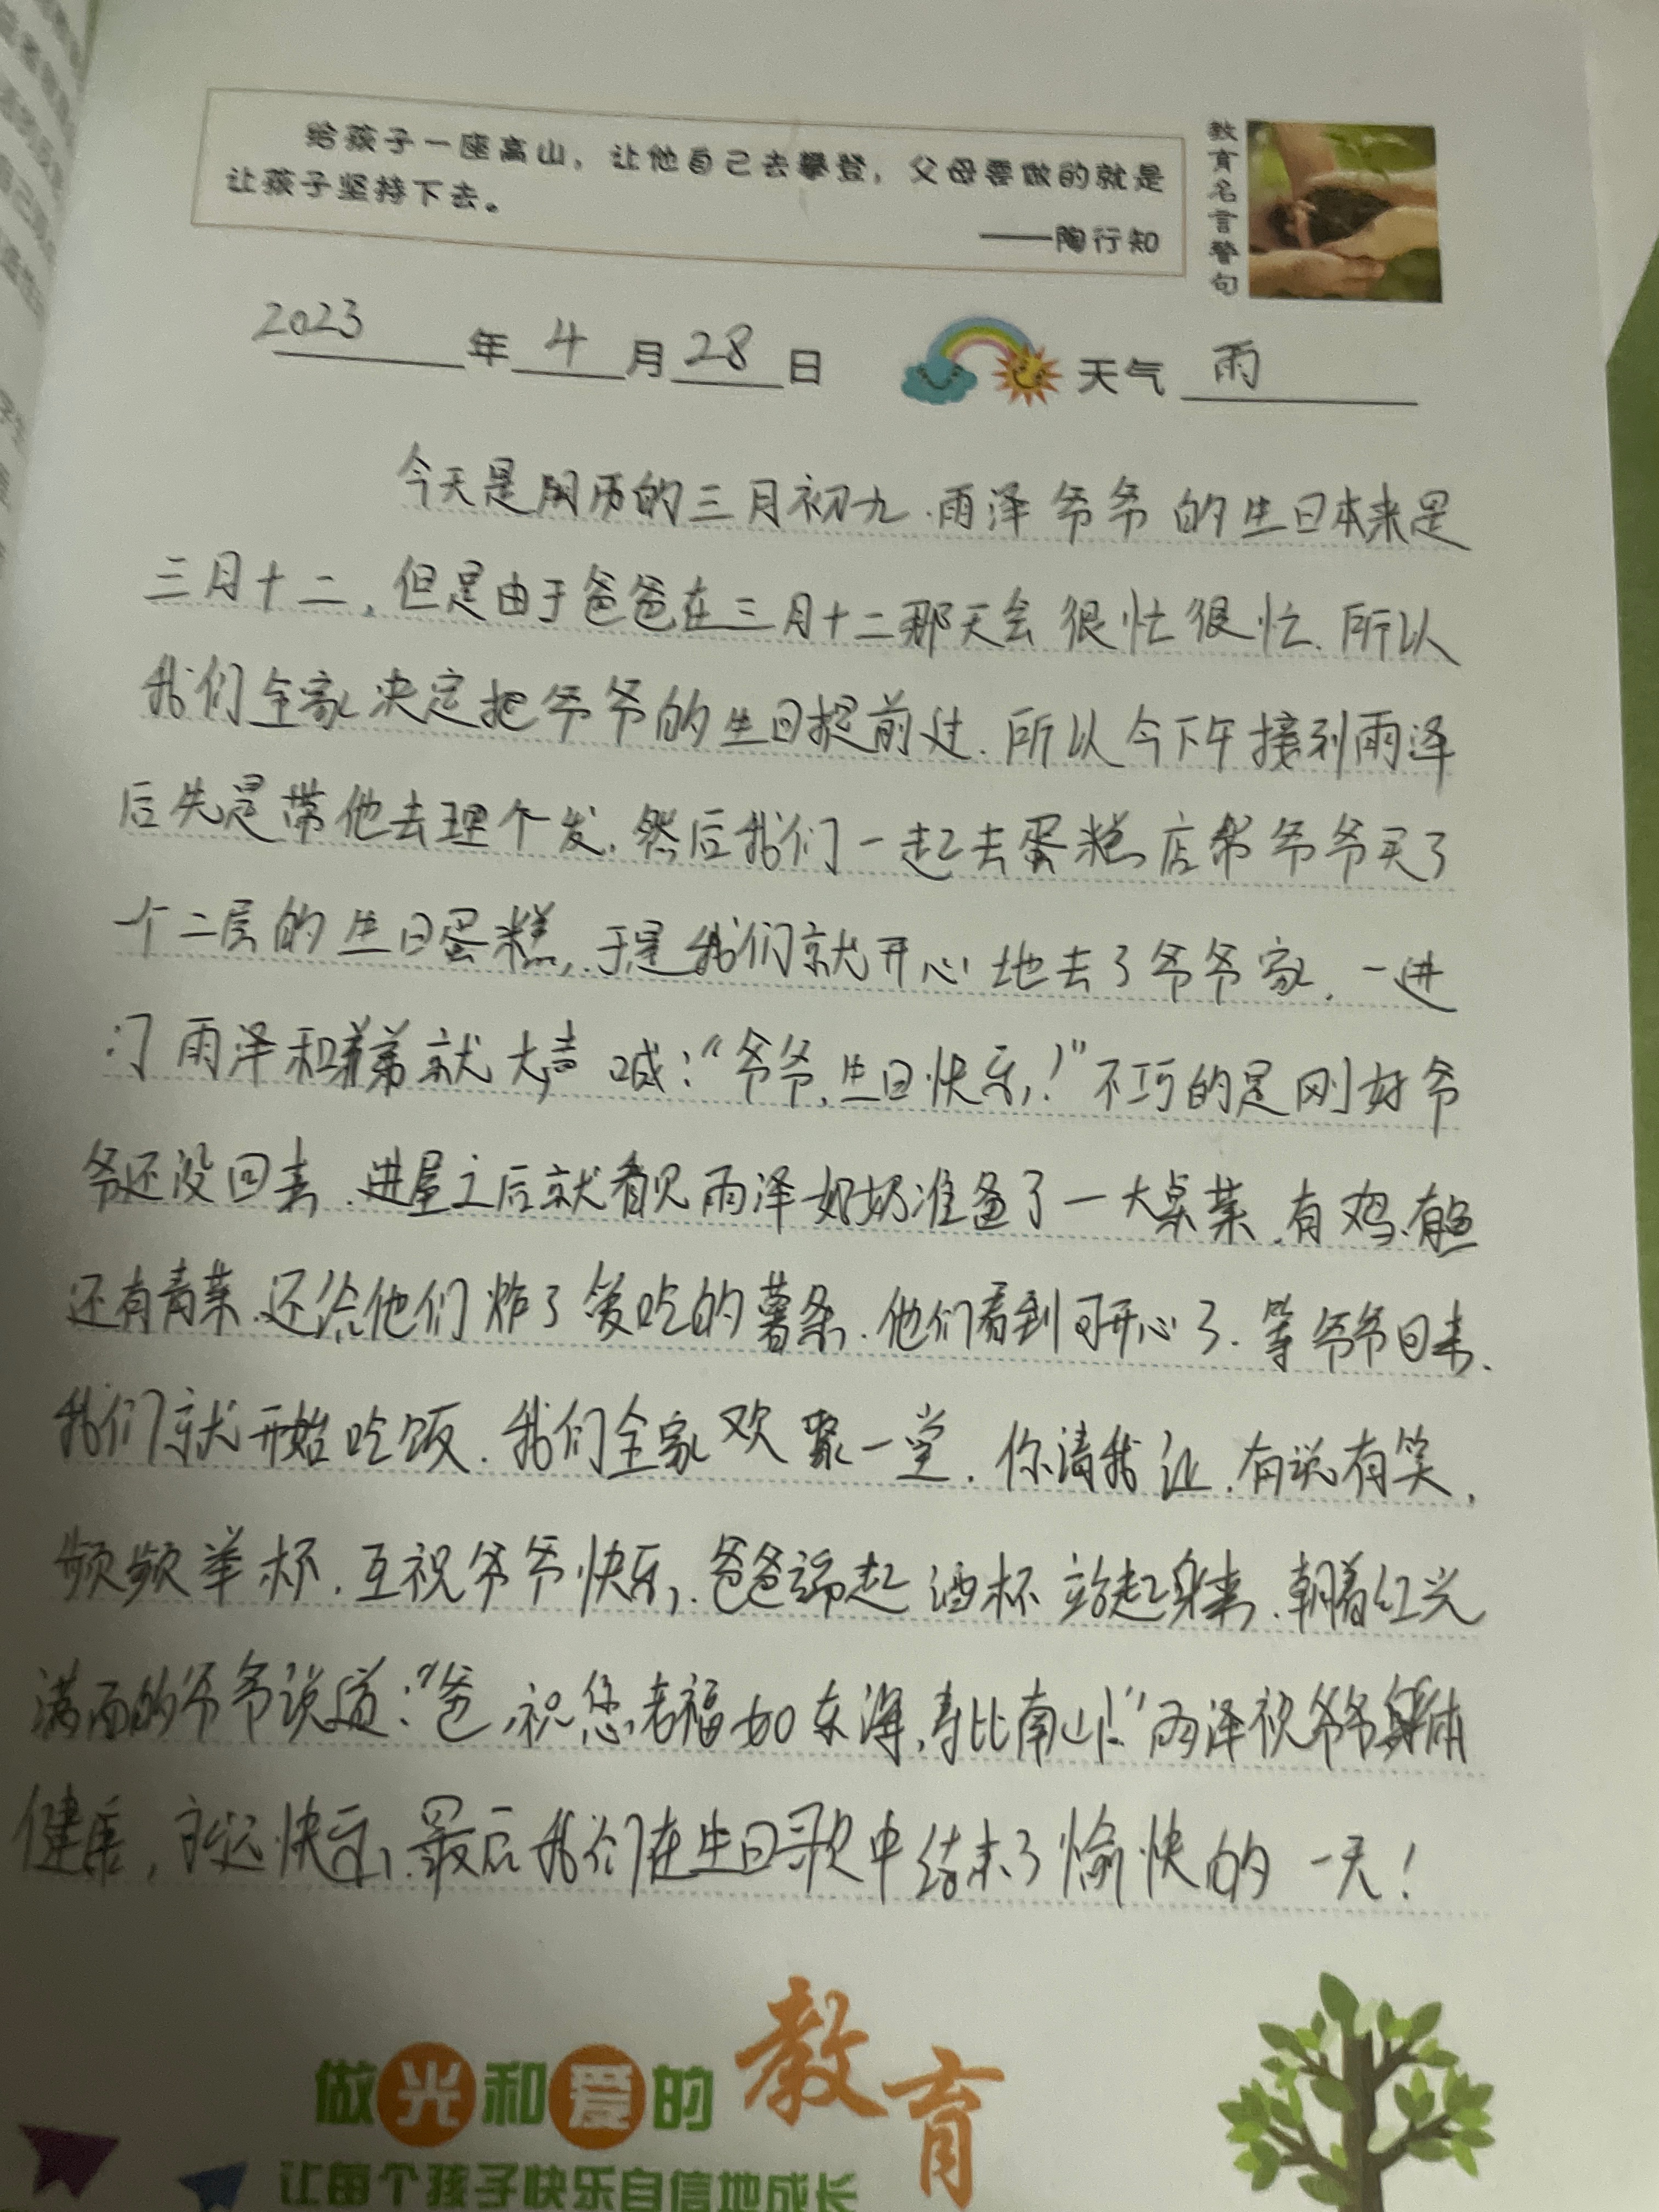 给孩子一座高山，让他自己去攀登，父母要做的就是
让孩子坚持下去。
——陶行知
教育名言警句
2023年4月28日 天气 雨
今天是阴历的三月初九.雨泽爷爷的生日本来是
三月十二，但是由于爸爸在三月十二那天会很忙很忙.所以
我们全家决定把爷爷的生日提前过.所以今下午接到雨泽
后先是带他去理个发.然后我们一起去蛋糕店给爷爷买了
一个二层的生日蛋糕,于是我们就开心地去了爷爷家.一进
门雨泽和弟弟就大声喊:“爷爷,生日快乐!”不巧的是刚好爷
爷还没回来.进屋之后就看见雨泽奶奶准备了一大桌菜.有鸡.有鱼
还有青菜.还给他们炸了爱吃的薯条.他们看到可开心了.等爷爷回来.
我们就开始吃饭.我们全家欢聚一堂.你请我让.有说有笑,
频频举杯.互祝爷爷快乐,.爸爸端起酒杯站起身来.朝着红光
满面的爷爷说道:“爸,祝您老福如东海,寿比南山!”雨泽祝爷爷身体
健康,永远快乐,最后我们在生日歌中结束了愉快的一天!
做光和爱的教育
让每个孩子快乐自信地成长